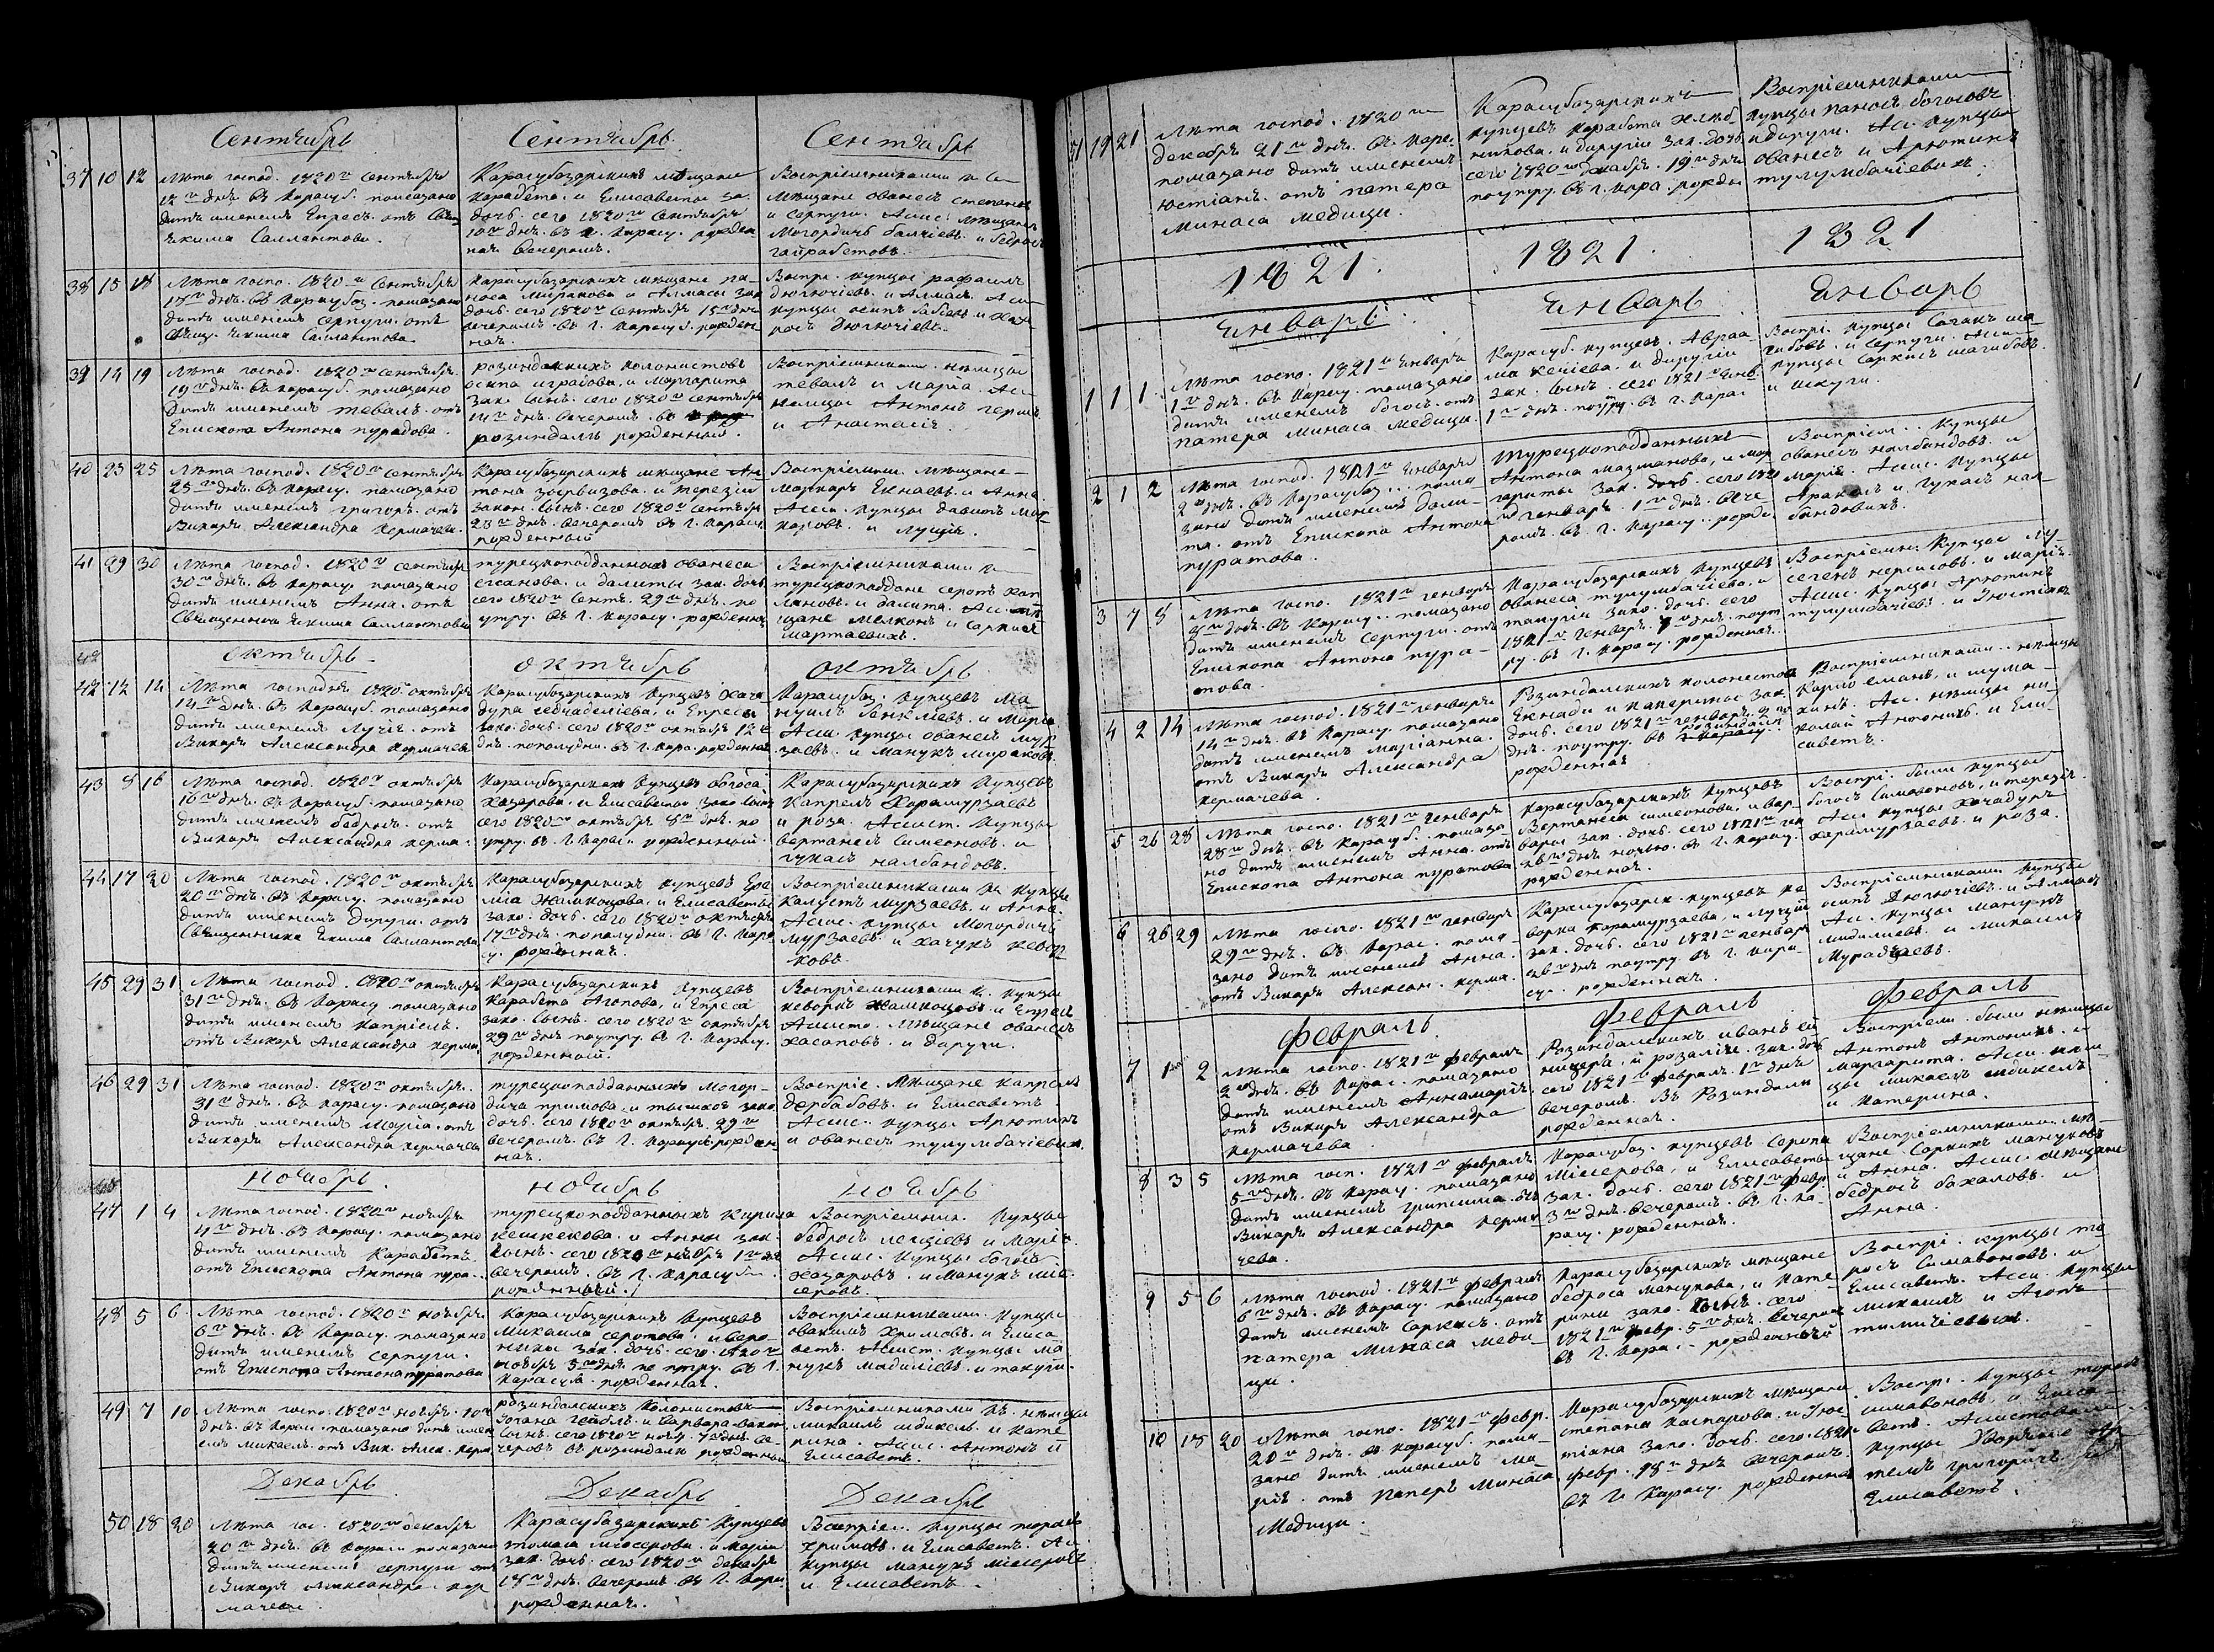 Сентябрь Сентябрь Сентябрь
37 10 12 Лѣта господ. 1820 го Сентября
12 го дня. въ Карасуб. помазано
дитя именемъ Епресъ. отъ Свящ.
Якима Саллантова.
Карасубазарскихъ мѣщане
Карабета. и Елисаветы за.
дочь. сего 1820 го Сентября
10 го дня. въ г. Карасу. рожден
ная вечеромъ.
Воспріемниками
Мѣщане Ованесъ степановъ
и Серпуги. Асис. Мѣщане
Могордичь балчіевъ. и бедросъ
гайрабетовъ.
38 15 18 Лѣта госпо. 1820 го Сентября
18 го дня. въ Карасубаз. помазано
дитя именемъ серпуги. отъ
Свящ. Якима Саллантова.
Карасубазарскихъ мѣщане па-
носа Миракова и Алмасы зак
дочь. сего 1820 го Сентября 15 го дня
вечеромъ. въ г. Карасуб. рожден
ная.
Воспрі. купцы рафаилъ
дюлючіевъ. и Алмасъ. Аси-
купцы осипъ бабіевъ и хаче
росъ Дюлючіевъ.
39 14 19 Лѣта господ. 1820 го сентября
19 го дня. въ карасуб. помазано
дитя именемъ тевалъ. отъ
Епископа Антона пурадова.
розиндалскихъ колонистовъ
осипа играцова, и Маргарита
зак. сынъ. сего 1820 го сентября
14 го дня. вечеромъ. въ
розиндалѣ рожденный.
Воспріемниками. немцы
тевалъ и Марія. Ас-
немцы Антонъ герни
и Анастасія.
40 23 25 Лѣта господ. 1820 го сентября
25 го дня. въ Карасу. помазано
дитя именемъ григоръ. отъ
Викаря Александра Кермачева.
Карасубазарскихъ мѣщане Ан-
тона зоервизова. и терезіи
закон. сынъ. сего 1820 го Сентября
23 го дня. вечеромъ въ г. Карасу.
рожденный
Воспріемни. мѣщане-
Маркаръ Екнаевъ. и Анна.
Асси. купцы давитъ Мар-
каровъ. и луція.
41 29 30 Лѣта господ. 1820 го сентября
30 го дня. въ Карасу. помазано
дитя именемъ Анна. отъ
Священника Якима Саллантова
турецкоподданныхъ ованеса
егсанова. и далиты зак. дочь
сего 1820 го Сентя. 29 го дня. по
утру. въ г. Карасу. рожденна
Воспріемниками
турецкоподдане серопъ кап
лановъ. и далита. Ас.
щане Мелконъ и Саркисъ
Мартаевихъ.
октябрь октябрь октябрь
42 12 14 Лѣта господня. 1820 октября
14 го дня. въ Карасуб. помазано
дитя именемъ Лучія. отъ
Викаря Александра Кермачева
Карасубазарскихъ Купцевъ Хача
дура гедчаделіева, и Епреса
зако. дочь. сего 1820 го октября 12
дня. пополудни. въ г. Кара. рожденна
Карасубаз. купцевъ Ма
нуилъ бенкліевъ. и Марія
Асси. купцы ованесъ Мур
заевъ. и Манукъ Мураковъ.
43 8 16 Лѣта господ. 1820 го октября
16 го дня. въ Карасуб. помазано
дитя именемъ бедросъ. отъ
Викаря Александра керма.
Карасубазарскихъ Купцевъ богоса
Хазарова. и Елисаветы зако сынъ
сего 1820 го октября 8 го дня. по
утру. въ г. Карас. рожденный.
Карасубазарскихъ Купцевъ
Капрелъ Карамурзаевъ
и роза. Ассист. Купцы
вертанесъ Симеоновъ. и
гукасъ налбандовъ.
44 17 20 Лѣта господ. 1820 го октября
20 го дня. въ Карасу. помазано
дитя именемъ Диругы. отъ
Священника Якима Саллантова
Карасубазарскихъ купцевъ Ере
міа Жамкоцова, и Елисаветы
зако. дочь. сего 1820 го октября
17 го дня. пополудни. въ г. Кара
су. рожденная.
Воспріемниками Купцы
Калустъ Мурзаевъ. и Анна.
Асис. купцы Могордичь
Мурзаевъ. и хачукъ кевор
ковъ.
45 29 31 Лѣта господ. 1820 го октября
31 го дня. въ Карасу помазано
дитя именемъ капріелъ.
отъ Викаря Александра керма.
Карасубазарскихъ Купцевъ
карабета Агопова, и Епреса
зако. сынъ. сего 1820 го октября
29 го дня поутру. въ г. Карасу.
рожденный.
Воспріемниками купцы
кеворкъ Жамкоцовъ и Епресъ
Асисто. Мѣщане Ованесъ
хасаповъ. и Даруги.
46 29 31 Лѣта господ. 1820 го октября.
31 го дня. въ Карасу. помазано
дитя именемъ Марія. отъ
Викаря Александра кермачева
турецкоподданныхъ Могор-
дича примова. и
дочь. сего 1820 го октября. 29 го
вечеромъ. въ г. Карасуб. рожден-
ная.
Воспріе. Мѣщане Капрелъ
дербабовъ. и Елисаветъ.
Асис. купцы Арютинъ
и Ованесъ тулумбачіевихъ.
ноябрь. ноябрь ноябрь
47 1 4 Лѣта господ. 1820 го ноября
4 го дня. въ Карасу. помазано
дитя именемъ Карабетъ.
отъ Епископа Антона пура..
турецкоподданныхъ кирила
кешкекова. и Анны зак.
сынъ. сего 1820 го ноября 1 го дня
вечеромъ. въ г. Карасуб.
рожденный.
Воспріемник. Купцы
бедросъ легціевъ и Марія.
Асис. купцы богосъ
хазаровъ. и Манукъ міс-
серовъ.
48 5 6 Лѣта господ. 1820 го ноября.
6 го дня. въ Карасу. помазано
дитя именемъ серпуги.
отъ Епископа Антона пуратова
Карасубазарскихъ Купцевъ
Михаила серопова. и веро-
ники зак. дочь. сего 1820 го
ноября 5 го дня. по утру. въ г.
Карасуб. рожденная.
Воспріемниками. Купцы
овакимъ Хримовъ. и Елиса
ветъ. Ассист. купцы Ма
нукъ мадиліевъ. и такуги.
49 7 10 Лѣта госпо. 1820 го ноября. 10 го
дня. въ Карас. помазано дитя имен
емъ Микаелъ. отъ Вик. Алек. керм
розиндалскихъ Колонистовъ
Іогана гейблъ. и Варвара закон
сынъ. сего 1820 го нояб. 7 го дня. ве-
черовъ въ розиндали рожденный
Воспріемниками немцы
михаилъ шдикель. и Кате
рина. Асис. Антонъ и
Елисаветъ.
Декабрь Декабрь Декабрь
50 18 20 Лѣта гос. 1820 го декабря
20 го дня. въ Карас. помазано
дитя именемъ серпуги отъ
Викаря Александра кер
мачева.
Карасубазарскихъ Купцевъ
томаса міосерова. и Марія
зак. дочь. сего 1820 го декабря
18 го дня. вечеромъ въ г. Кара
рожденная.
Воспріем. купцы торосъ
хримовъ. и Елисаветъ. Ас
купцы манукъ місеровъ
и Елисаветъ.
51 19 21 Лѣта господ. 1820 го
декабря 21 го дня. въ Кара.
помазано дитя именемъ
юстіанъ. отъ патера
минаса медици.
Карасубазарскихъ
купцевъ Карабета хлеб-
никова. и диругіи зак. дочь
сего 1820 го декабря. 19 го дня
поутру. въ г. Кара. рожден
Воспріемниками
купцы паносъ богосовъ
и дируги. Ас. купцы
ованесъ и Арютинъ
тулумбачіевихъ.
1821. 1821. 1821
Январь. Январь Январь
1 1 1 Лѣта госпо. 1821 го Января
1 го дня. въ Карасу. помазано
дитя именемъ богосъ. отъ
патера минаса медици.
Карасуб. купцевъ. Авраа-
ма кечіева. и диругіи
зак. сынъ. сего 1821 го Янв.
1 го дня. поутру. въ г. Карас
Воспрі. купцы Саакъ ша-
гибовъ. и серпуги. Асси.
купцы саркисъ шагибовъ.
и шкуги.
2 1 2 Лѣта господ. 1821 го Января
2 го дня. въ Карасубаз. пома
зано дитя именемъ дали-
та. отъ Епископа Антона
пуратова.
Турецкоподданныхъ
Антона мазманова, и мар
гариты зак. дочь. сего 1821
го генваря. 1 го дня. вече
ромъ. въ г. Карасу. рожде.
Воспріем.. купцы
ованесъ налбандовъ. и
Марія. Асис. купцы
Аракелъ и гукасъ нал-
бандовихъ.
3 7 8 Лѣта госпо. 1821 го генваря
8 го дня. въ Карасу. помазано
дитя именемъ серпуги. отъ
Епископа Антона пура-
това.
Карасубазарскихъ Купцевъ
ованеса тулумбачіева, и
такугіи зако. дочь. сего
1821 го генваря. 7 го дня. поут
ру. въ г. Карасу. рожденная.
Воспріемни. Купцы лу-
сегенъ нерисовъ. и Марія.
Асис. купцы Арютинъ
тулумбачіевъ. и Юстіанъ
4 2 14 Лѣта господ. 1821 го генваря
14 го дня. въ Карасу. помазано
дитя именемъ Маріанна.
отъ Викаря Александра
кермачева.
Розиндалскихъ колонистовъ
Екнади и катерины зак.
дочь. сего 1821 го генваря. 2 го
дня. поутру. въ розиндали
рожденная
Воспріемниками. немцы
Карло еманъ, и шума-
хинъ. Ас. немцы ни-
колай Антонихъ. и Ели
саветъ.
5 26 28 Лѣта госпо. 1821 го генваря
28 го дня. въ Карасуб. помаза
но дитя именемъ Анна. отъ
Епископа Антона пуратова
Карасубазарскихъ купцевъ
Вертанеса симеонова, и вар-
вары зак. дочь. сего 1821 го ген
26 го дня ночью. въ г. Карасу.
рожденная.
Воспрі. были купцы
богосъ Симавоновъ, и терезія.
Асси купцы хачадуръ
карамурзаевъ. и роза.
6 26 29 Лѣта госпо. 1821 го генваря
29 го дня. въ Карас. пома-
зано дитя именемъ Анна.
отъ Викаря Алексан. керма.
Карасубазарск. купцевъ ке
ворка карамурзаева, и лучіи
зак. дочь. сего 1821 го генваря
26 го дня поутру. въ г. кара-
су. рожденная.
Воспріемниками купцы
осипъ дюлючіевъ. и Алмасъ
Ас. купцы манукъ
мидилиевъ. и михаилъ
Мурадчаевъ.
Февраль. Февраль Февраль
7 1 2 Лѣта госпо. 1821 го февраля
2 го дня. въ Карас. помазано
дитя именемъ Аннамарія.
отъ Викаря Александра
кермачева
Розиндалскихъ иванъ ей
ницера, и розаліи. зак. дочь
сего 1821 го февраля. 1 го дня
вечеромъ. въ Розиндали
рожденная.
Воспріем. были немцы
Антонъ Антонихъ. и
маргарита. Асси. нем-
цы микаелъ шдикелъ
и катерина.
8 3 5 Лѣта госп. 1821 го февраля
5 го дня. въ Карасу. помазано
дитя именемъ грипсима. отъ
Викаря Александра керма
чева.
Карасубаз. купцевъ серопа
Місерова, и Елисаветы
зак. дочь. сего 1821 го февр.
3 го дня. вечеромъ. въ г. ка-
расу. рожденная.
Воспріемниками. мѣ
щане Саркизъ мануковъ
и Анна. Асис. мѣщане
бедросъ бахаловъ. и
Анна.
9 5 6 Лѣта господ. 1821 го февраля
6 го дня. въ Карасу. помазано
дитя именемъ саркисъ. отъ
патера Минаса меди-
ци.
Карасубазарскихъ мѣщане
бедроса манукова, и кате
рини зако. сынъ. сего
1821 го февр. 5 го дня. вечеромъ
въ г. Карас- рожденный
Воспрі. купцы то
росъ Симавоновъ. и
Елисаветъ. Асси. купцы
михаилъ и Агопъ
8 10 18 20 Лѣта госпо. 1821 го февр.
20 го дня. въ Карасуб. пома-
зано дитя именемъ ма-
рія. отъ патеръ минаса
Медици.
Карасубазарскихъ мѣщане
степана каспарова. и Юс-
тіана зако. дочь. сего 1821 го
февр. 18 го дня вечеромъ.
въ г. Карасу. рожденна
Воспрі. купцы торосъ
симавоновъ. и Елиса-
ветъ. Асистовали.
купцы
григоричъ.
Елисаветъ.